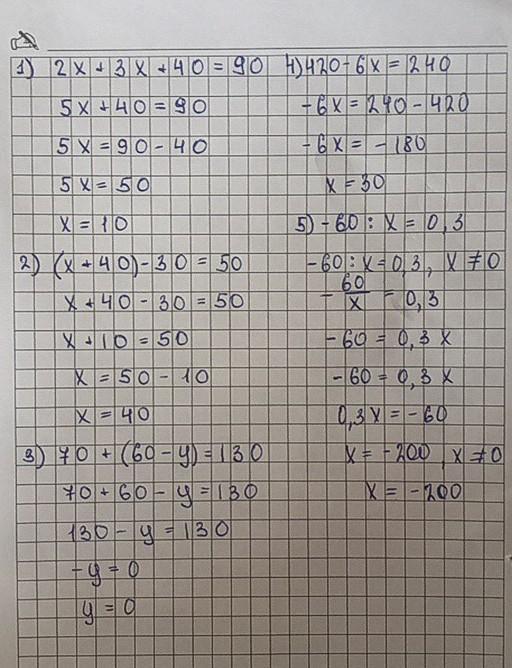 1) 2x + 3x + 40 = 90
5x + 40 = 90
5x = 90 - 40
5x = 50
x = 10
2) (x + 40) - 30 = 50
x + 40 - 30 = 50
x + 10 = 50
x = 50 - 10
x = 40
3) 70 + (60 - y) = 130
70 + 60 - y = 130
130 - y = 130
-y = 0
y = 0
4) 420 - 6x = 240
-6x = 240 - 420
-6x = -180
x = 30
5) -60 : x = 0,3
-60 : x = 0,3, x ≠ 0
-60/x = 0,3
-60 = 0,3 x
-60 = 0,3 x
0,3x = -60
x = -200, x ≠ 0
x = -200